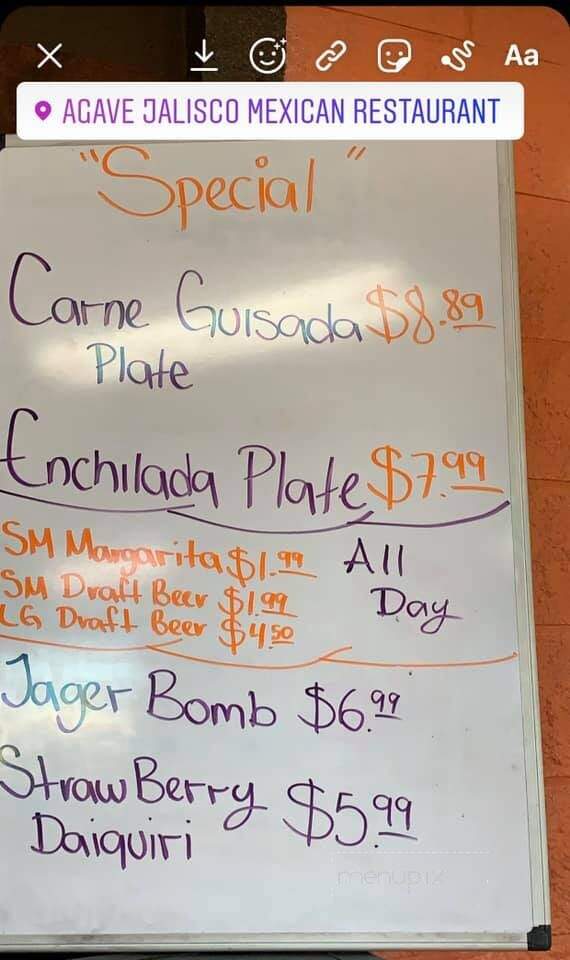 Aa
AGAVE JALISCO MEXICAN RESTAURANT
"Special"
Carne Guisada $8.89
Plate
Enchilada Plate $7.99
SM Margarita $1.99 All
SM Draft Beer $1.99 Day
LG Draft Beer $4.50
Jager Bomb $6.99
StrawBerry $5.99
Daiquiri
menupix